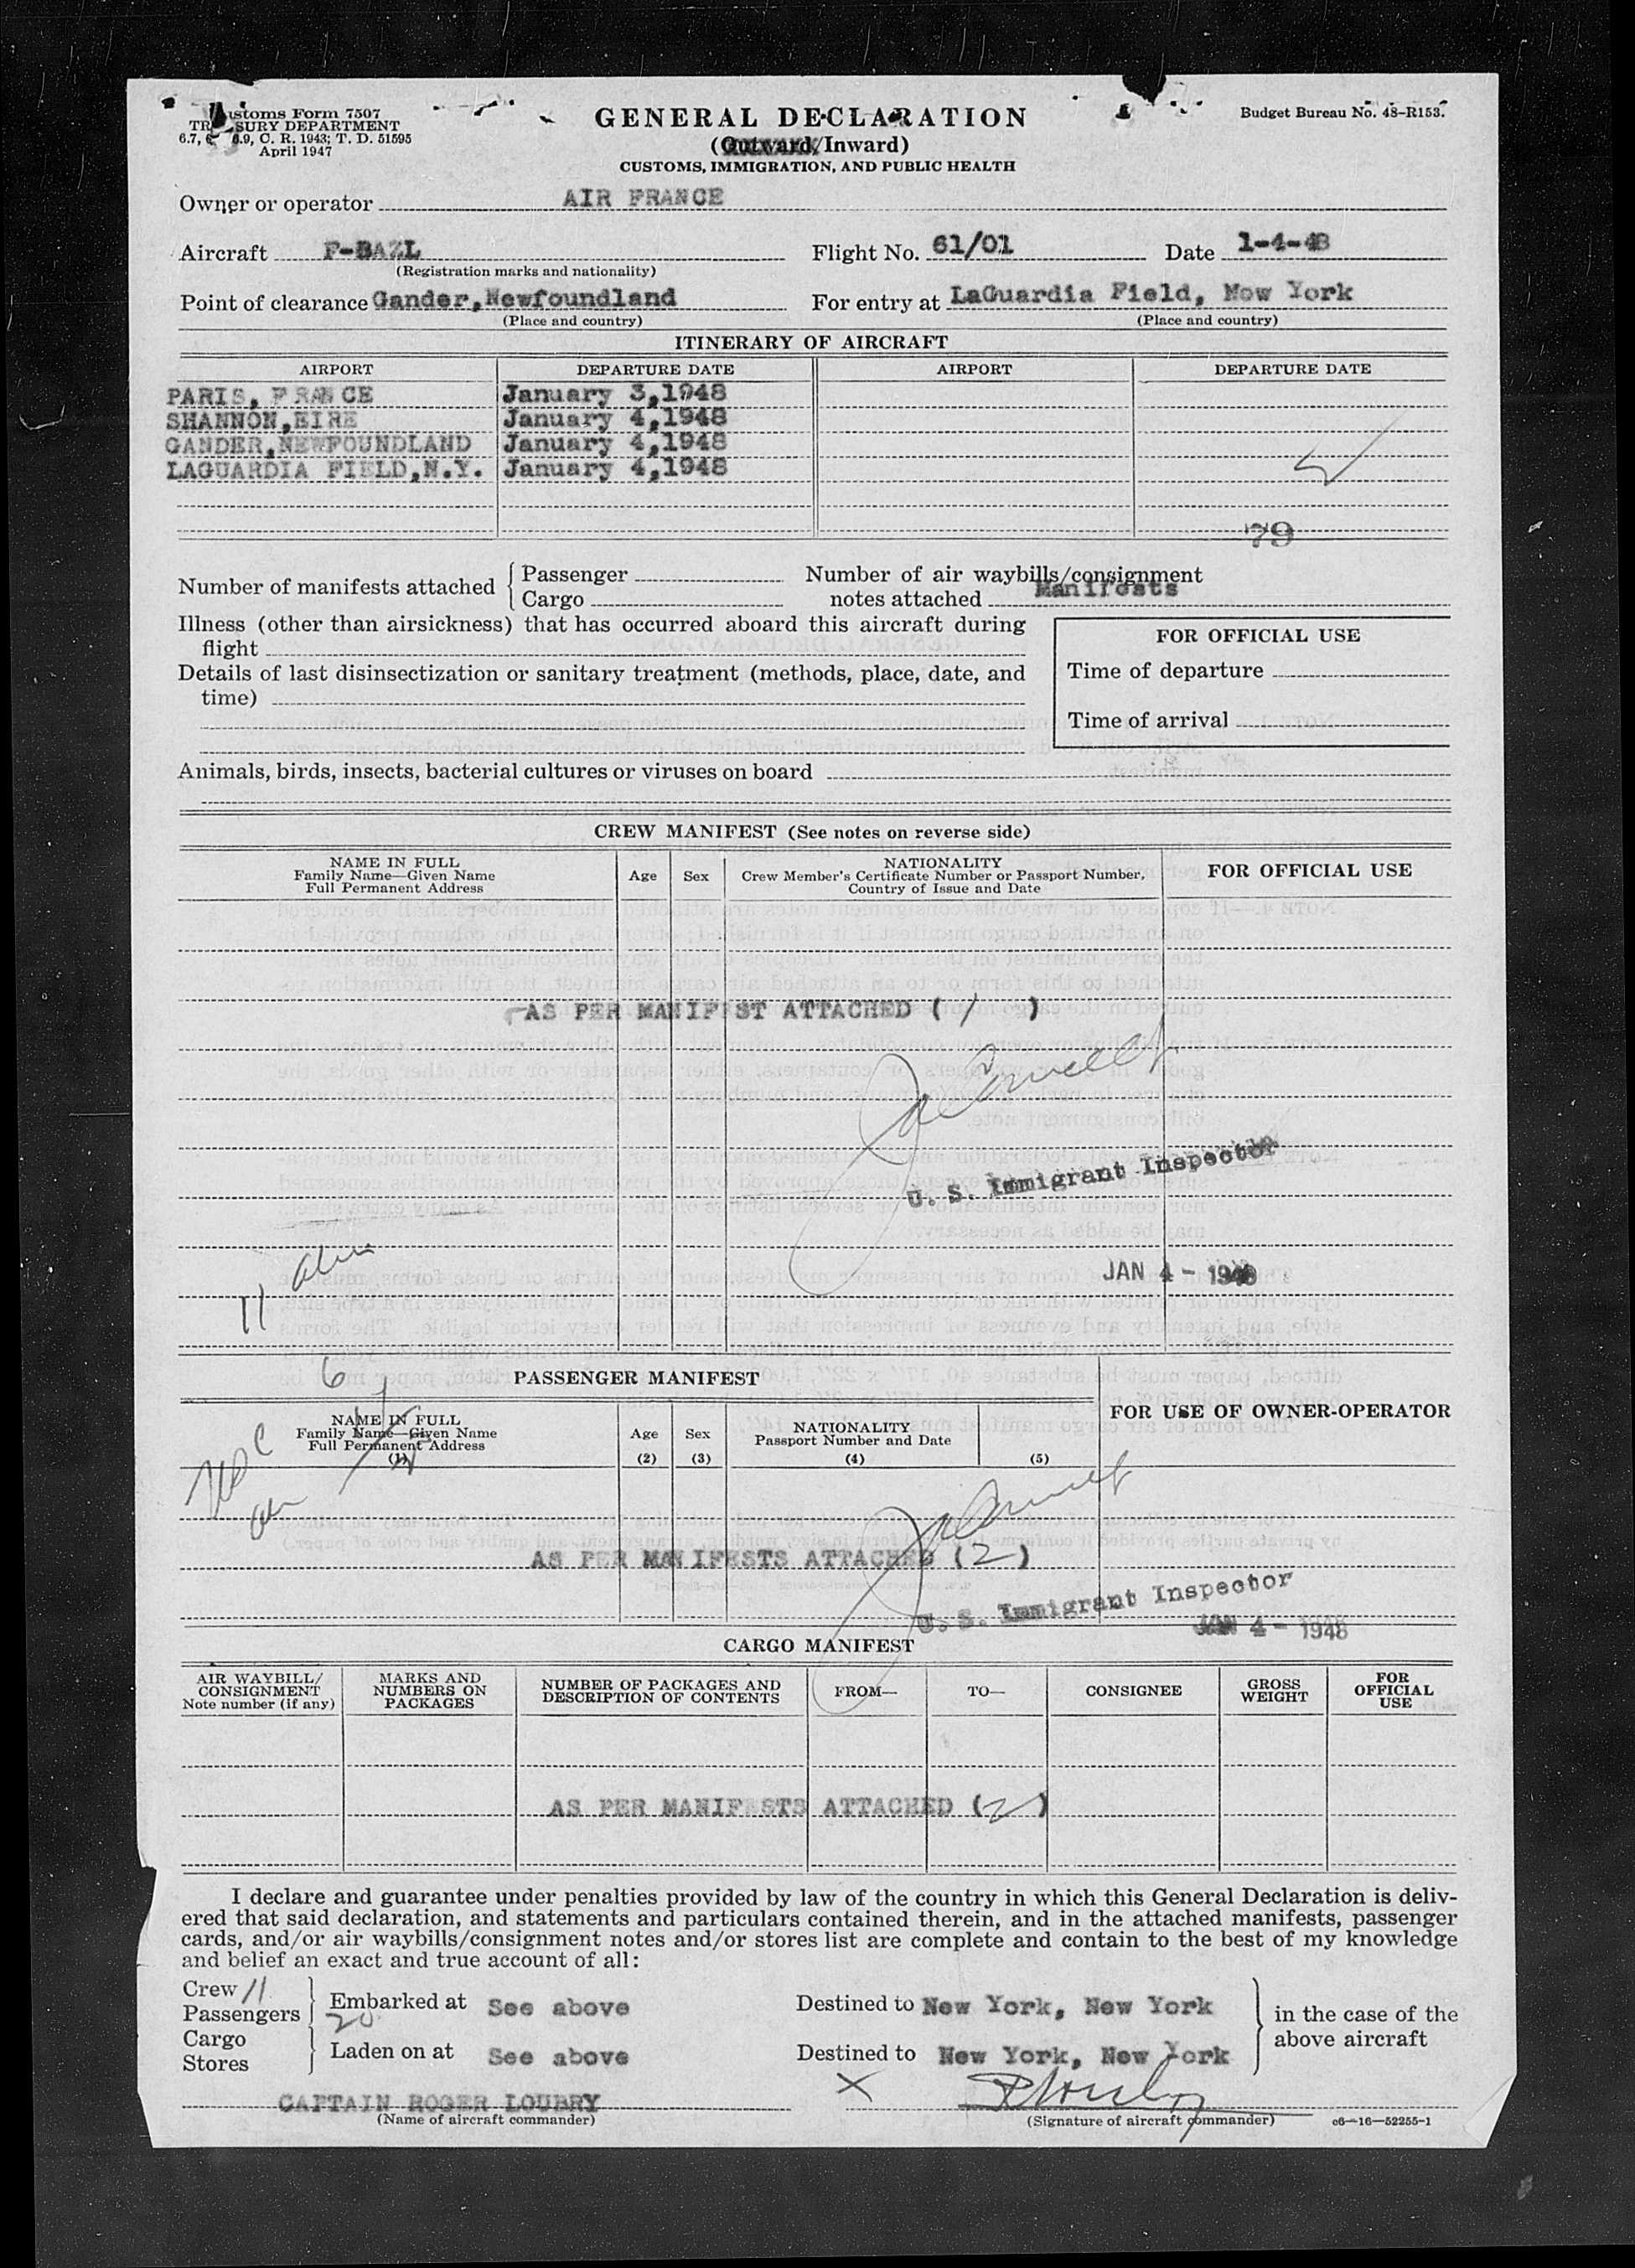 Customs Form 7507
TREASURY DEPARTMENT
6.7, 6.8, 6.9, C. R. 1943; T. D. 51595
April 1947
GENERAL DECLARATION
(Outward/Inward)
CUSTOMS, IMMIGRATION, AND PUBLIC HEALTH
Budget Bureau No. 48-R153.
Owner or operator AIR FRANCE
Aircraft F-BAZL Flight No. 61/01 Date 1-4-48
(Registration marks and nationality)
Point of clearance Gander, Newfoundland For entry at LaGuardia Field, New York
(Place and country) (Place and country)
ITINERARY OF AIRCRAFT
AIRPORT DEPARTURE DATE AIRPORT DEPARTURE DATE
PARIS, FRANCE January 3,1948
SHANNON,EIRE January 4,1948
GANDER,NEWFOUNDLAND January 4,1948
LAGUARDIA FIELD,N.Y. January 4,1948
79
Number of manifests attached Passenger Number of air waybills/consignment
Cargo notes attached Manifests
Illness (other than airsickness) that has occurred aboard this aircraft during
flight
FOR OFFICIAL USE
Details of last disinsectization or sanitary treatment (methods, place, date, and
time)
Time of departure
Time of arrival
Animals, birds, insects, bacterial cultures or viruses on board
CREW MANIFEST (See notes on reverse side)
NAME IN FULL
Family Name—Given Name
Full Permanent Address
Age Sex
NATIONALITY
Crew Member's Certificate Number or Passport Number,
Country of Issue and Date
FOR OFFICIAL USE
AS PER MANIFEST ATTACHED ( 1 )
U. S. Immigrant Inspector
JAN 4 - 1948
11
6
PASSENGER MANIFEST
NAME IN FULL
Family Name—Given Name
Full Permanent Address
(1)
Age
(2)
Sex
(3)
NATIONALITY
Passport Number and Date
(4) (5)
FOR USE OF OWNER-OPERATOR
AS PER MANIFESTS ATTACHED (2)
U. S. Immigrant Inspector
JAN 4 - 1948
CARGO MANIFEST
AIR WAYBILL/
CONSIGNMENT
Note number (if any)
MARKS AND
NUMBERS ON
PACKAGES
NUMBER OF PACKAGES AND
DESCRIPTION OF CONTENTS
FROM— TO— CONSIGNEE
GROSS
WEIGHT
FOR
OFFICIAL
USE
AS PER MANIFESTS ATTACHED (2)
I declare and guarantee under penalties provided by law of the country in which this General Declaration is deliv-
ered that said declaration, and statements and particulars contained therein, and in the attached manifests, passenger
cards, and/or air waybills/consignment notes and/or stores list are complete and contain to the best of my knowledge
and belief an exact and true account of all:
Crew 11
Passengers 20 Embarked at See above Destined to New York, New York in the case of the
Cargo above aircraft
Stores Laden on at See above Destined to New York, New York
X
CAPTAIN ROGER LOUBRY
(Name of aircraft commander) (Signature of aircraft commander) c6—16—52255-1